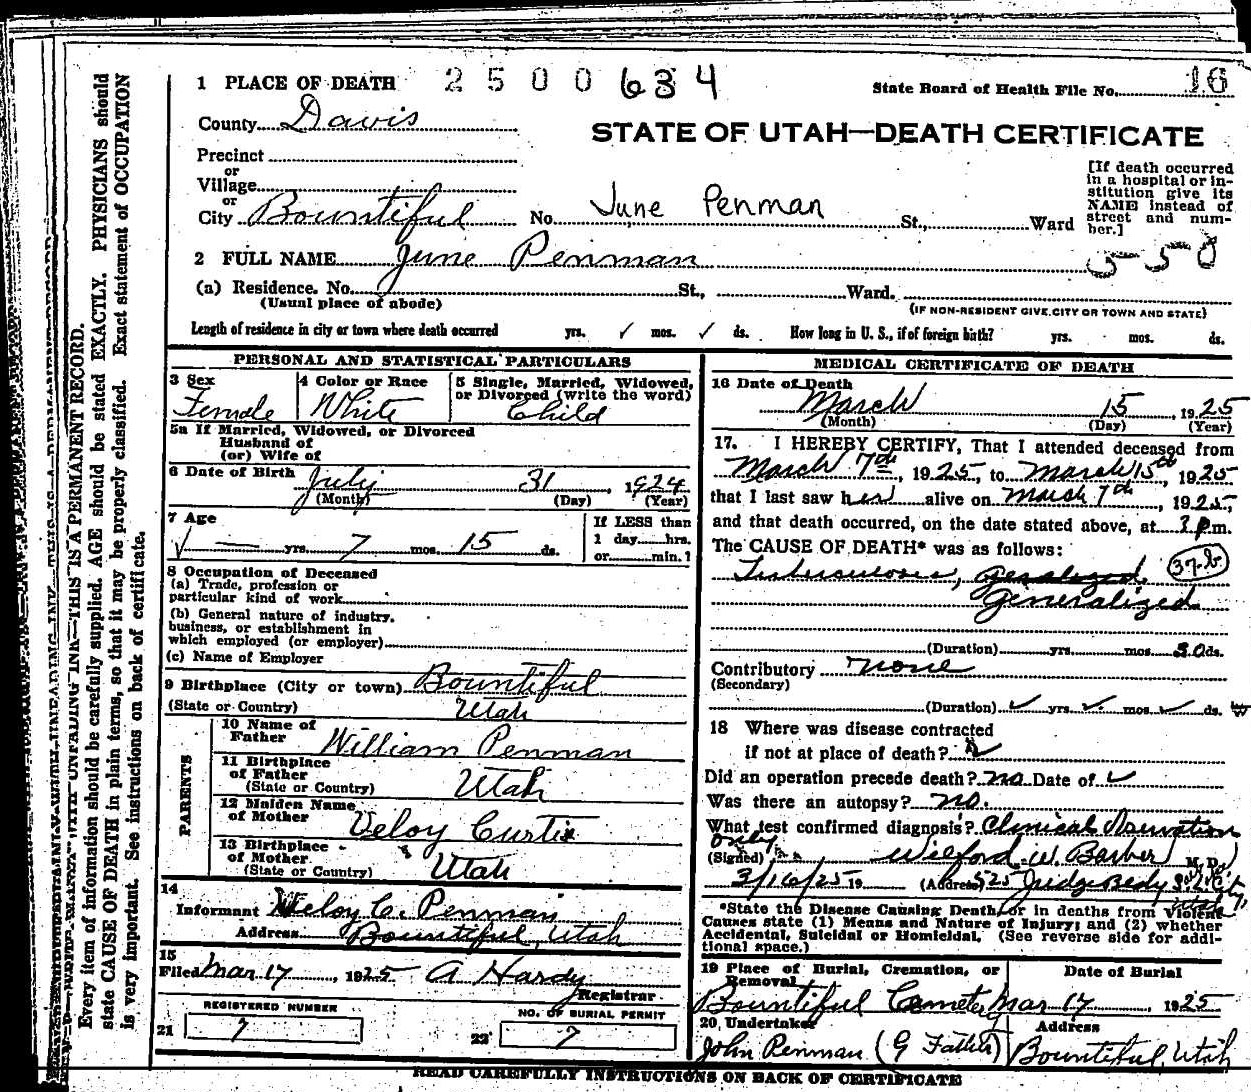 1 PLACE OF DEATH 2500634
State Board of Health File No. 16
County Davis
STATE OF UTAH—DEATH CERTIFICATE
Precinct
or
Village
or
City Bountiful No. June Penman St., Ward
[If death occurred
in a hospital or in-
stitution give its
NAME instead of
street and num-
ber.]
2 FULL NAME June Penman
550
(a) Residence. No. St., Ward.
(Usual place of abode)
(IF NON-RESIDENT GIVE CITY OR TOWN AND STATE)
Length of residence in city or town where death occurred yrs. ✓ mos. ✓ ds. How long in U. S., if of foreign birth? yrs. mos. ds.
PERSONAL AND STATISTICAL PARTICULARS
3 Sex
Female
4 Color or Race
White
5 Single, Married, Widowed,
or Divorced (write the word)
Child
5a If Married, Widowed, or Divorced
Husband of
(or) Wife of
6 Date of Birth July 31, 1924
(Month) (Day) (Year)
7 Age
✓ — yrs. 7 mos. 15 ds.
If LESS than
1 day hrs.
or min.?
8 Occupation of Deceased
(a) Trade, profession or
particular kind of work
(b) General nature of industry,
business, or establishment in
which employed (or employer)
(c) Name of Employer
9 Birthplace (City or town) Bountiful
(State or Country) Utah
PARENTS
10 Name of
Father William Penman
11 Birthplace
of Father
(State or Country) Utah
12 Maiden Name
of Mother Veloy Curtis
13 Birthplace
of Mother
(State or Country) Utah
14
Informant Veloy C. Penman
Address Bountiful, Utah
15
Filed Mar 17, 1925 A Hardy
Registrar
REGISTERED NUMBER
21 7
NO. OF BURIAL PERMIT
22 7
MEDICAL CERTIFICATE OF DEATH
16 Date of Death
March 15, 1925
(Month) (Day) (Year)
17. I HEREBY CERTIFY, That I attended deceased from
March 7th, 1925, to March 15th, 1925
that I last saw her alive on March 7th, 1925,
and that death occurred, on the date stated above, at ? p.m.
The CAUSE OF DEATH* was as follows:
Tuberculosis, 37-b
Generalized
(Duration) yrs. mos. 30 ds.
Contributory none
(Secondary)
(Duration) ✓ yrs ✓ mos ✓ ds.
18 Where was disease contracted
if not at place of death?
Did an operation precede death? no Date of ✓
Was there an autopsy? no.
What test confirmed diagnosis? Clinical Observation
only
(Signed) Wilford W. Barber M. D.
3/16/25 19 (Address) 525 Judge Bldg S.L. City,
Utah
*State the Disease Causing Death, or in deaths from Violent
Causes state (1) Means and Nature of Injury; and (2) whether
Accidental, Suicidal or Homicidal. (See reverse side for addi-
tional space.)
19 Place of Burial, Cremation, or
Removal
Bountiful Cemetery
Date of Burial
Mar 17 1925
20 Undertaker
John Penman (G Father)
Address
Bountiful, Utah
READ CAREFULLY INSTRUCTIONS ON BACK OF CERTIFICATE
THIS IS A PERMANENT RECORD.
Every item of information should be carefully supplied. AGE should be stated EXACTLY. PHYSICIANS should
state CAUSE OF DEATH in plain terms, so that it may be properly classified. Exact statement of OCCUPATION
is very important. See instructions on back of certificate.